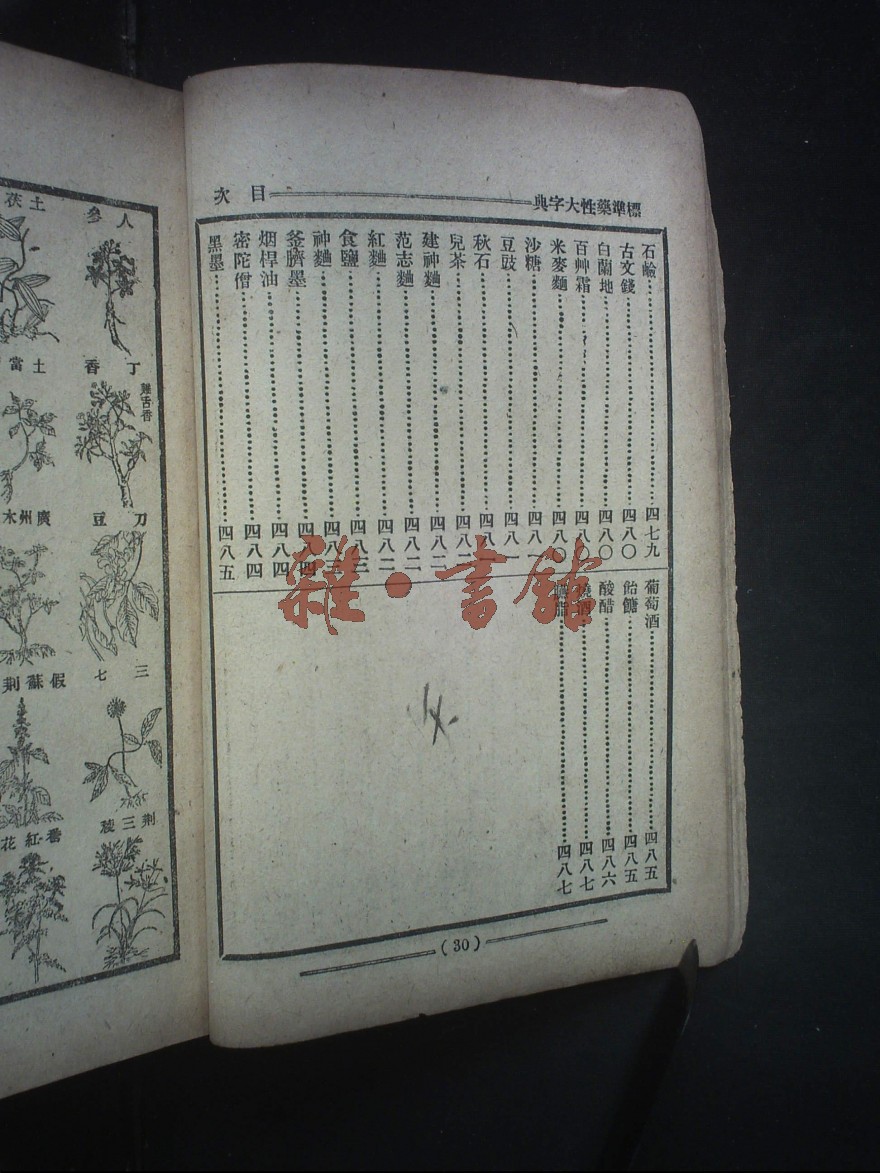 標準藥性大字典
目次
石鹼四七九
古文錢四八〇
白蘭地四八〇
百艸霜四八〇
米麥麵四八〇
沙糖四八一
豆豉四八一
秋石四八一
兒茶四八二
建神麯四八二
范志麯四八二
紅麯四八二
食鹽四八三
神麯四八三
釜臍墨四八四
烟桿油四八四
密陀僧四八四
黑墨四八五
葡萄酒四八五
飴餹四八五
酸醋四八六
燒酒四八七
脂四八七
(30)
人參
土茯
丁香
雞舌香
土當
刀豆
廣州木
三七
假蘇荆
荆三稜
番紅花
雜·書館